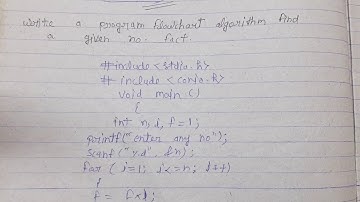 write a program flowchart algorithm find
a given no. fact.
#include <stdio.h>
#include <conio.h>
void main ()
{
int n, i, f=1;
printf("enter any no");
scanf("%d", &n);
for (i=1; i<=n; i++)
{
f = f*i;